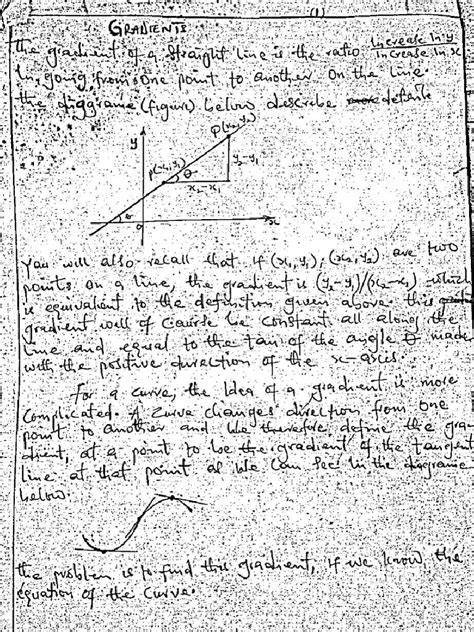 (1)
GRADIENTS
The gradient of a straight line is the ratio Increase In y / Increase In x
In going from one point to another on the line.
the diggrame (figure) below describe definite
y
Q(x₂, y₂)
P(x₁, y₁)
θ
y₂-y₁
x₂-x₁
θ
o
x
You will also recall that if (x₁, y₁), (x₂, y₂) are two
points on a line, the gradient is (y₂-y₁)/(x₂-x₁) which
is equivalent to the definition given above. this
gradient will of Course be constant all along the
line and equal to the tan of the angle θ made
with the positive direction of the x-axis.
For a curve, the Idea of a gradient is more
Complicated. A Curve changes direction from one
point to another and we therefore define the gra-
dient, at a point to be the gradient of the tangent
line at that point as we can see in the diagrame
below.
the problem is to find this gradient, if we know the
equation of the curve.